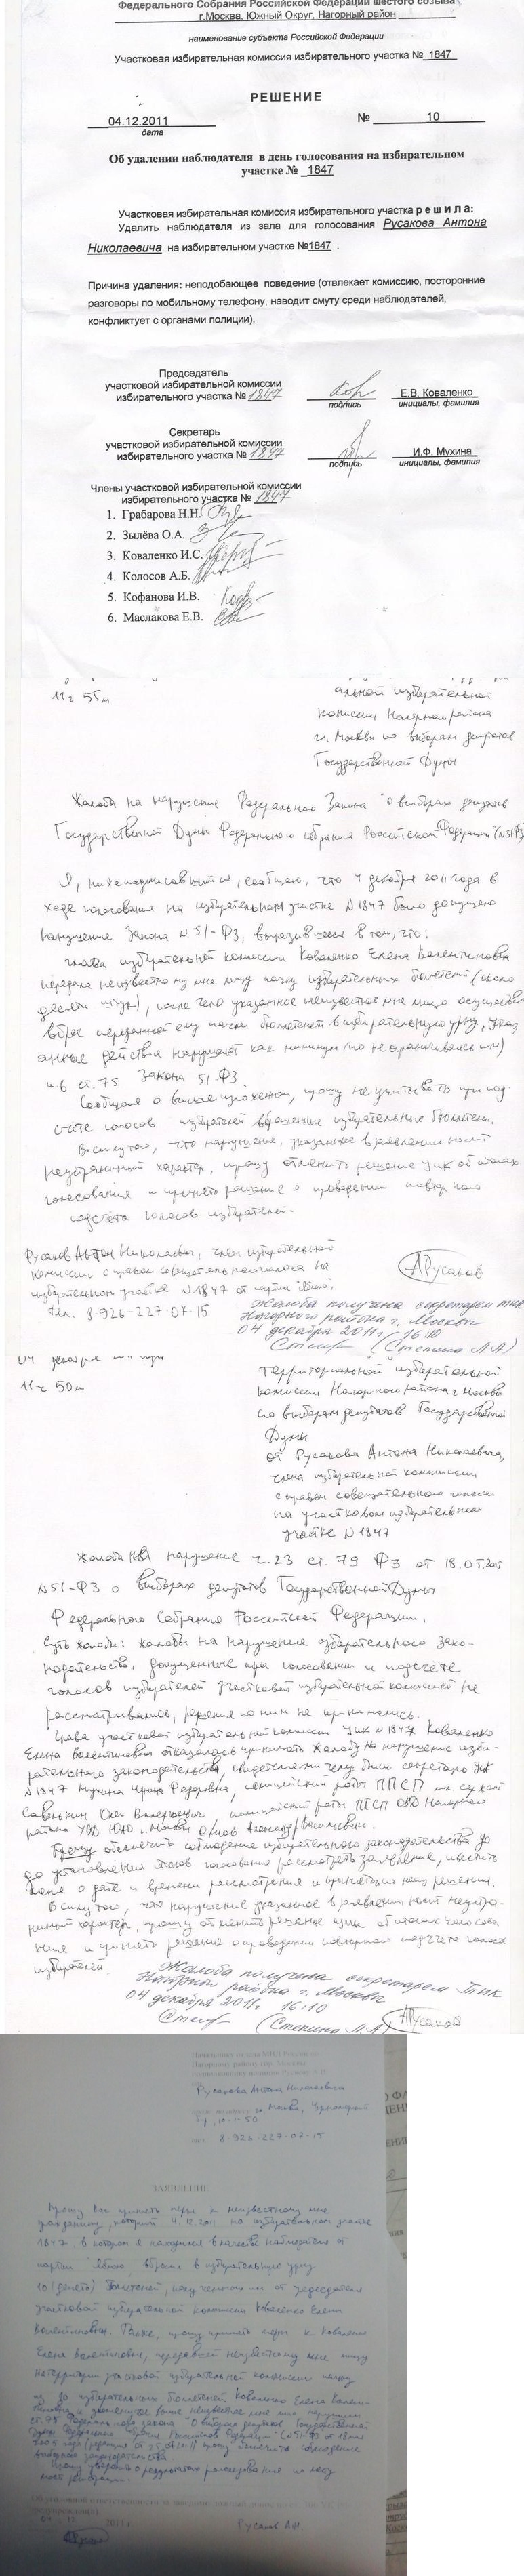 Федерального Собрания Российской Федерации шестого созыва
г.Москва, Южный Округ, Нагорный район
наименование субъекта Российской Федерации
Участковая избирательная комиссия избирательного участка № 1847
РЕШЕНИЕ
04.12.2011 № 10
дата
Об удалении наблюдателя в день голосования на избирательном
участке № 1847
Участковая избирательная комиссия избирательного участка р е ш и л а:
Удалить наблюдателя из зала для голосования Русакова Антона
Николаевича на избирательном участке №1847 .
Причина удаления: неподобающее поведение (отвлекает комиссию, посторонние
разговоры по мобильному телефону, наводит смуту среди наблюдателей,
конфликтует с органами полиции).
Председатель
участковой избирательной комиссии
избирательного участка № 1847 Е.В. Коваленко
подпись инициалы, фамилия
Секретарь
участковой избирательной комиссии
избирательного участка № 1847 И.Ф. Мухина
подпись инициалы, фамилия
Члены участковой избирательной комиссии
избирательного участка № 1847
1. Грабарова Н.Н.
2. Зылёва О.А.
3. Коваленко И.С.
4. Колосов А.Б.
5. Кофанова И.В.
6. Маслакова Е.В.
11 ч 55 м
альной избирательной
комиссии Нагорного района
г. Москвы по выборам депутатов
Государственной Думы
Жалоба на нарушение Федерального Закона "О выборах депутатов
Государственной Думы Федерального собрания Российской Федерации" (N51ФЗ)
Я, нижеподписавшийся, сообщаю, что 4 декабря 2011 года в
ходе голосования на избирательном участке N1847 было допущено
нарушение Закона N51-ФЗ, выразившееся в том, что:
глава избирательной комиссии Коваленко Елена Валентиновна
передала неизвестному мне лицу пачку избирательных бюллетеней (около
десяти штук), после чего указанное неизвестное мне лицо осуществило
вброс переданной ему пачки бюллетеней в избирательную урну, указ
анные действия нарушает как минимум (но не ограничиваясь им)
ст. 75 Закона 51-ФЗ.
Сообщая о выше изложенном, прошу не учитывать при под
счете голосов избирателей вброшенные избирательные бюллетени.
В силу того, что нарушение, указанное в заявлении носит
неустранимый характер, прошу отменить решение УИК об итогах
голосования и принять решение о проведении повторного
подсчёта голосов избирателей.
Русаков Антон Николаевич, член избирательной
комиссии с правом совещательного голоса на
избирательном участке N1847 от партии "Яблоко",
тел. 8-926-227-07-15
АРусаков
Жалоба получена секретарем ТИК
Нагорного района г. Москвы
04 декабря 2011г 16:10
(Степина Л.А)
04 декабря
11 ч 50 м
Территориальной избирательной
комиссии Нагорного района г. Москвы
по выборам депутатов Государственной
Думы
от Русакова Антона Николаевича,
члена избирательной комиссии
с правом совещательного голоса
на участковом избирательном
участке N1847
Жалоба на нарушение ч.23 ст. 79 ФЗ от 18.05.
N51-ФЗ о выборах депутатов Государственной Думы
Федерального Собрания Российской Федерации.
Суть жалобы: жалобы на нарушение избирательного зако-
нодательства, допущенные при голосовании и подсчёте
голосов избирателей участковой избирательной комиссией не
рассматривались, решения по ним не принимались.
Глава участковой избирательной комиссии УИК N1847 Коваленко
Елена Валентиновна отказалась принимать жалобу на нарушение изби-
рательного законодательства, свидетелями чему были секретарь УИК
N1847 Мухина Ирина Федоровна, полицейский роты ППСП
Савенкин Олег Валерьевич полицейский роты ППСП ОВД Нагорного
района УВД ЮАО г. Москвы Александр Васильевич.
Прошу обеспечить соблюдение избирательного законодательства до
до установления итогов голосования рассмотреть заявление, известить
меня о дате и времени рассмотрения и принятых по нему решениях.
В силу того, что нарушение указанное в заявлении носит неустра-
нимый характер, прошу отменить решение УИК об итогах голосова-
ния и принять решение о проведении повторного подсчёта голосов
избирателей.
Жалоба получена секретарем ТИК
Нагорного района г. Москвы
04 декабря 2011г 16:10
(Степина Л.А) АРусаков
Русакова Антона Николаевича
г. Москва,
8-926-227-07-15
ЗАЯВЛЕНИЕ
Прошу Вас принять меры к неизвестному мне
гражданину, который 4.12.2011 на избирательном участке
1847, в котором я находился в качестве наблюдателя от
партии "Яблоко", вбросил в избирательную урну
10 (десять) бюллетеней, полученных им от председателя
участковой избирательной комиссии Коваленко Елены
Валентиновны. Также, прошу принять меры к Коваленко
Елене Валентиновне, передавшей неизвестному мне лицу
на территории участковой избирательной комиссии пачку
из 10 избирательных бюллетеней
Русаков А.Н.